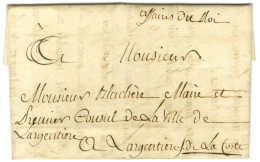 affaires du Roi
A Monsieur
Monsieur Blachère Maire et
Premier Consul de La Ville de
Largentière
A Largentière p.r La Corte